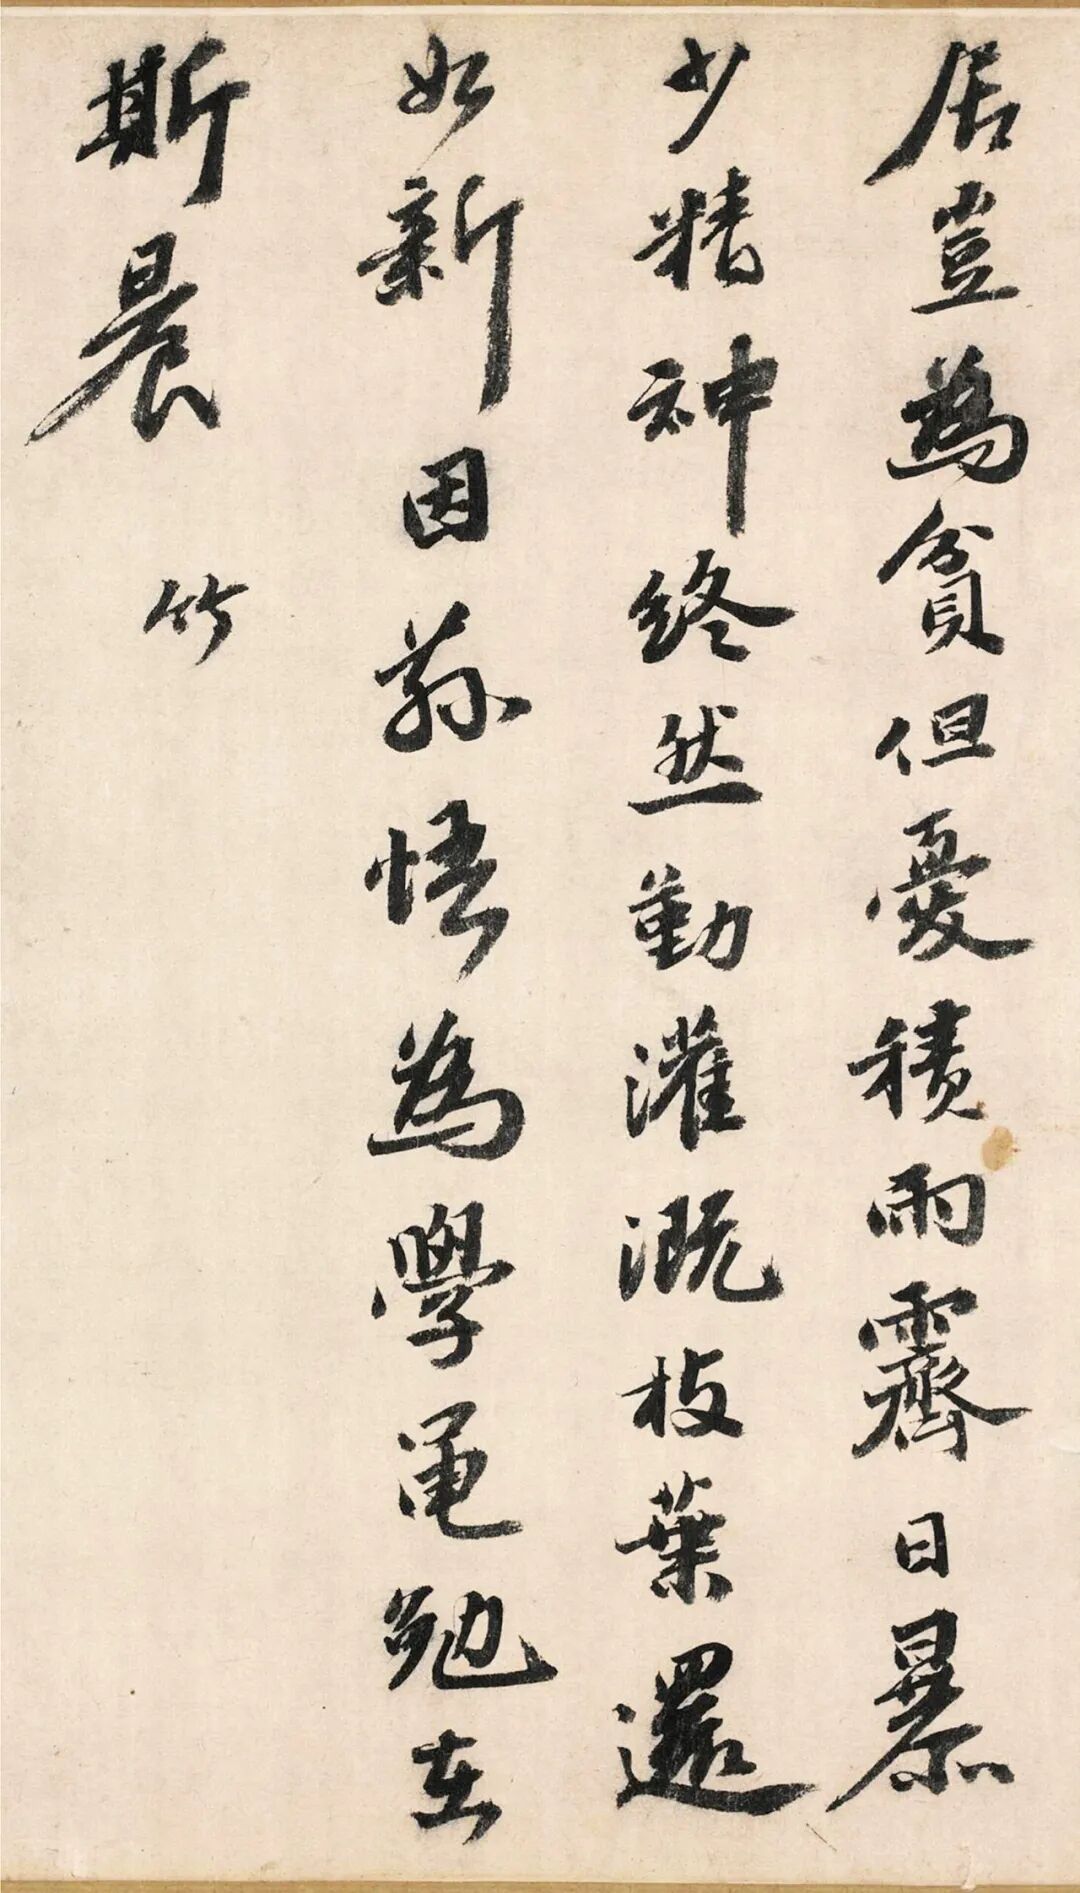 居豈為貧但憂積雨霽日暴
少精神終然勤灌溉枝葉還
如新因蓀悟為學黽勉在
斯晨 竹